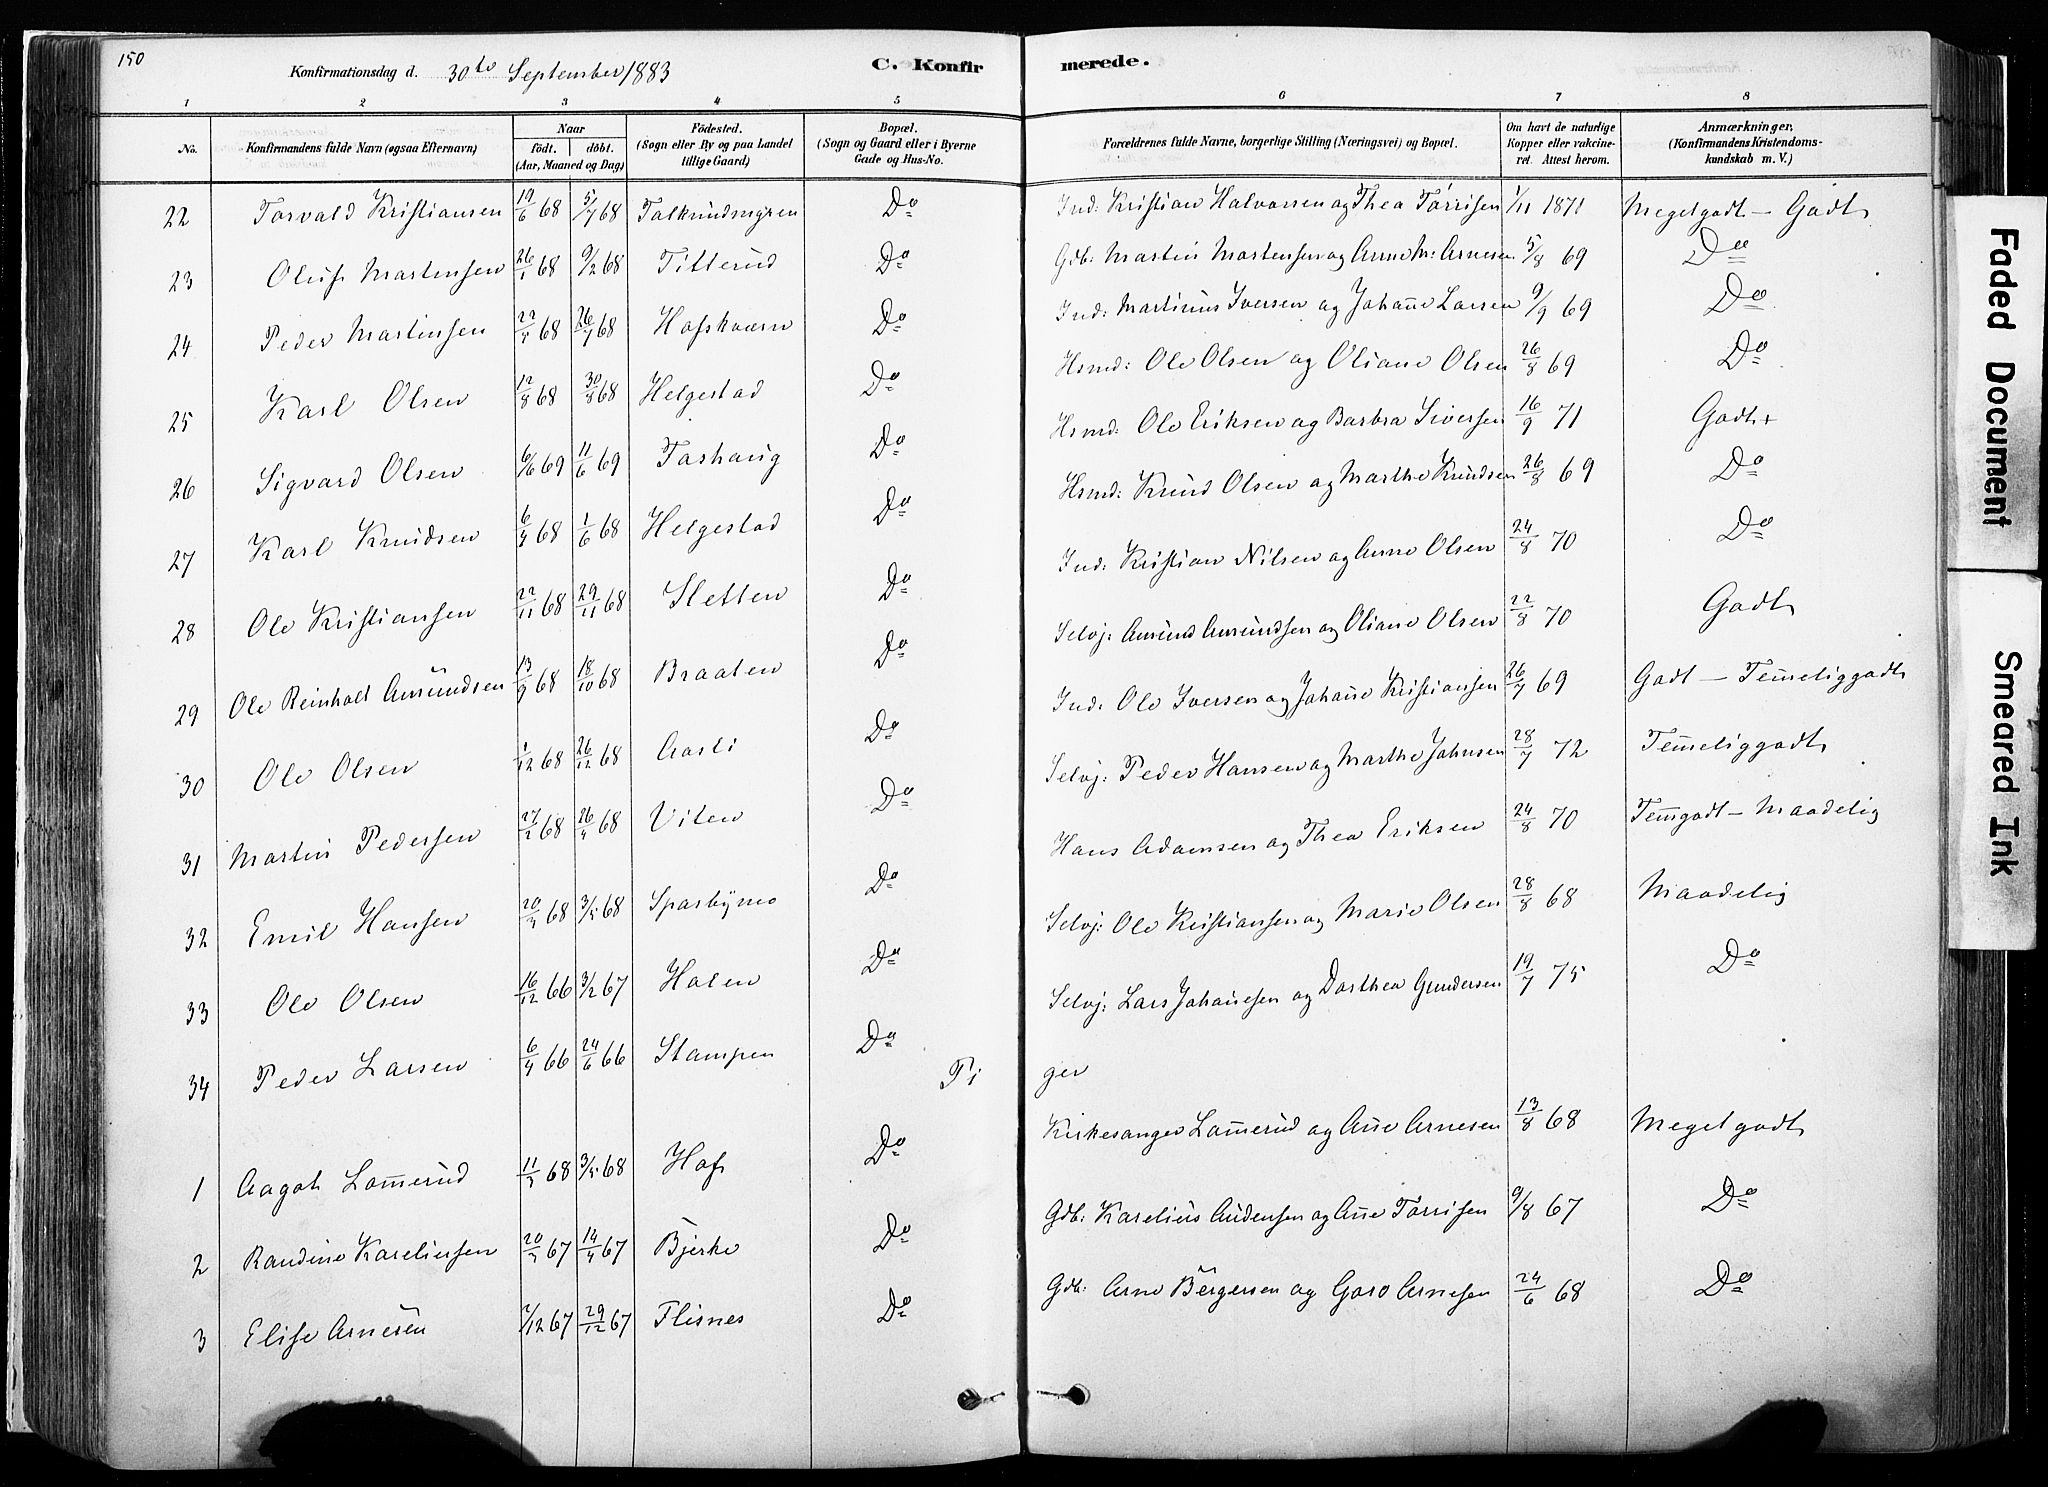 150
Konfirmationsdag d. 30te September 1883
C. Konfirmerede.
1 2 3 4 5 6 7 8
No. Konfirmandens fulde Navn (ogsaa Efternavn) Naar født. døbt. (Aar, Maaned og Dag) Fødested. (Sogn eller By og paa Landet tillige Gaard) Bopæl. (Sogn og Gaard eller i Byerne Gade og Hus-No. Forældrenes fulde Navne, borgerlige Stilling (Næringsvei) og Bopæl. Om havt de naturlige Kopper eller vakcineret. Attest herom. Anmærkninger. (Konfirmandens Kristendomskundskab m. V.)
22 Torvald Kristiansen 19/6 68 5/7 68 Do Ind: Kristian Halvorsen og Thea Torrisen 1/11 1871 Megetgodt - Godt
23 Oluf Martensen 26/1 68 9/2 68 Titterud Do Gdb: Martin Martensen og Anne M: Arnesen 5/8 69 Do
24 Peder Martinsen 26/7 68 Hofskværn Do Ind: Martinus Iversen og Johañe Larsen 9/9 69 Do
25 Karl Olsen 12/8 68 30/8 68 Helgestad Do Hsmd: Ole Olsen og Oliane Olsen 26/8 69 Do
26 Sigvard Olsen 6/6 69 11/6 69 Torshaug Do Hsmd: Ole Eriksen og Barbra Siversen 16/9 71 Godt
27 Karl Knudsen 1/6 68 Helgestad Do Hsmd: Knud Olsen og Marthe Knudsen 26/8 69 Do
28 Ole Kristiansen 22/11 68 29/11 68 Sletten Do Ind: Kristian Nilsen og Anne Olsen 24/8 70 Do
29 Ole Reinholt Amundsen 13/9 68 18/10 68 Braaten Do Selvj: Amund Amundsen og Oliane Olsen 22/8 70 Godt
30 Ole Olsen 1/12 68 26/12 68 Aasli Do Ind: Ole Iversen og Johañe Kristiansen 26/7 69 Godt - Tem̄eliggodt
31 Martin Pedersen 27/2 68 26/4 68 Viten Do Selvj: Peder Hansen og Marthe Johnsen 28/7 72 Tem̄eliggodt
32 Emil Hansen 20/3 68 3/5 68 Sparbymo Do Hans Adamsen og Thea Eriksen 24/8 70 Tem̄godt - Maadelig
33 Ole Olsen 16/12 66 3/2 67 Holen Do Selvj: Ole Kristiansen og Marie Olsen 28/8 68 Maadelig
34 Peder Larsen 6/4 66 24/6 66 Stampen Do Selvj: Lars Johañesen og Dorthea Gundersen 19/7 75 Do
Piger
1 Aagot Lom̄erud 11/3 68 3/5 68 Hof Do Kirkesanger Lom̄erud og Añe Arnesen 13/8 68 Meget godt
2 Randine Kareliussen 20/3 67 14/4 67 Bjerke Do Gdb: Karelius Audensen og Añe Torrisen 9/8 67 Do
3 Elise Arnesen 7/12 67 29/12 67 Flisnes Do Gdb: Arne Børgersen og Goro Arnesen 24/6 68 Do
Faded Document
Smeared Ink